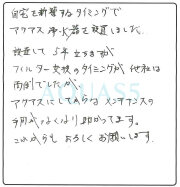 自宅を新築するタイミングで
アクアス浄水器を設置しました。
設置して5年立ちますが
フィルター交換のタイミングが他社は
面倒でしたが、
アクアスにしてからはメンテナンスの
手間がなくなり助かってます。
これからもよろしくお願いします。
AQUAS5